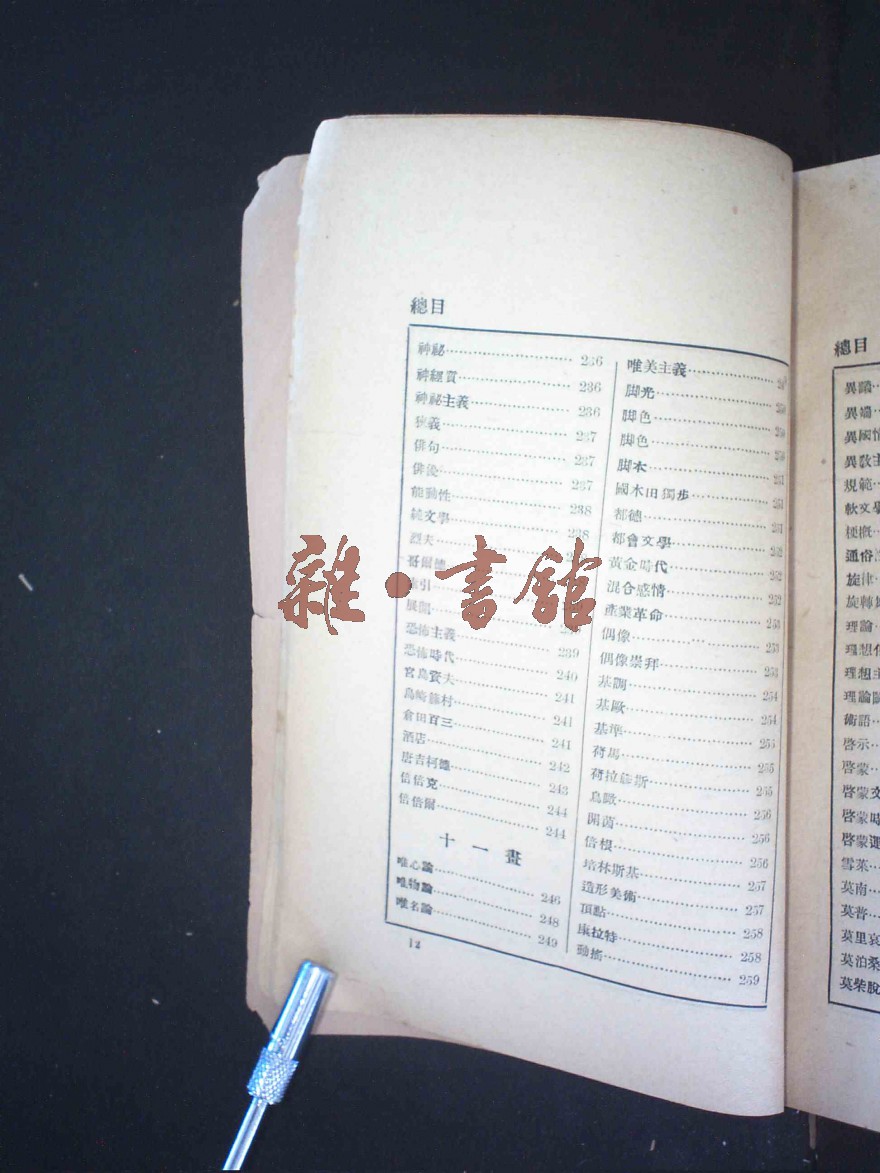 總目
神祕 236
神經質 236
神祕主義 236
狹義 237
俳句 237
俳優 237
能動性 238
純文學 238
烈夫
哥爾德
索引
展開
恐怖主義 239
恐怖時代 240
宮島資夫 241
島崎藤村 241
倉田百三 241
酒店 242
唐吉柯德 243
倍倍克 244
倍倍爾 244
十一畫
唯心論 246
唯物論 248
唯名論 249
唯美主義
脚光 250
脚色 250
脚色 250
脚本 251
國木田獨步 251
都德 251
都會文學 252
黃金時代 252
混合感情 252
產業革命 253
偶像 253
偶像崇拜 253
基調 254
基歐 254
基準 255
荷馬 255
荷拉𦀌斯 255
鳥瞰 256
開茵 256
倍根 256
培林斯基 257
造形美術 257
頂點 258
康拉特 258
動搖 259
12
雜·書館
總目
異國情
異教主
規範
軟文學
梗概
通俗
旋律
旋轉
理論
理想
理想主
理論
術語
啓示
啓蒙
啓蒙文
啓蒙時
啓蒙運
雪萊
莫南
莫普
莫里哀
莫泊桑
莫柴脫